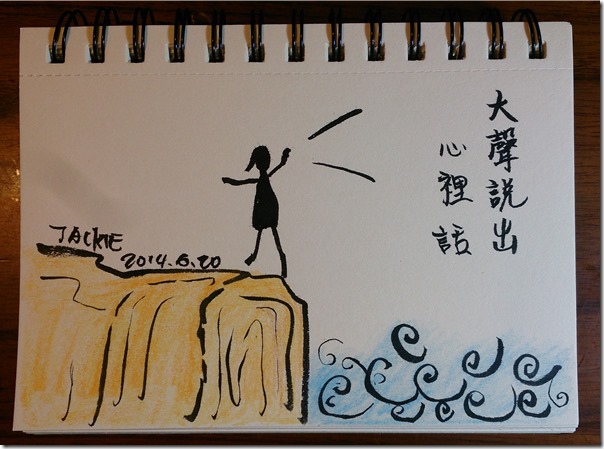 大聲說出
心裡話
JACKIE
2014.6.20